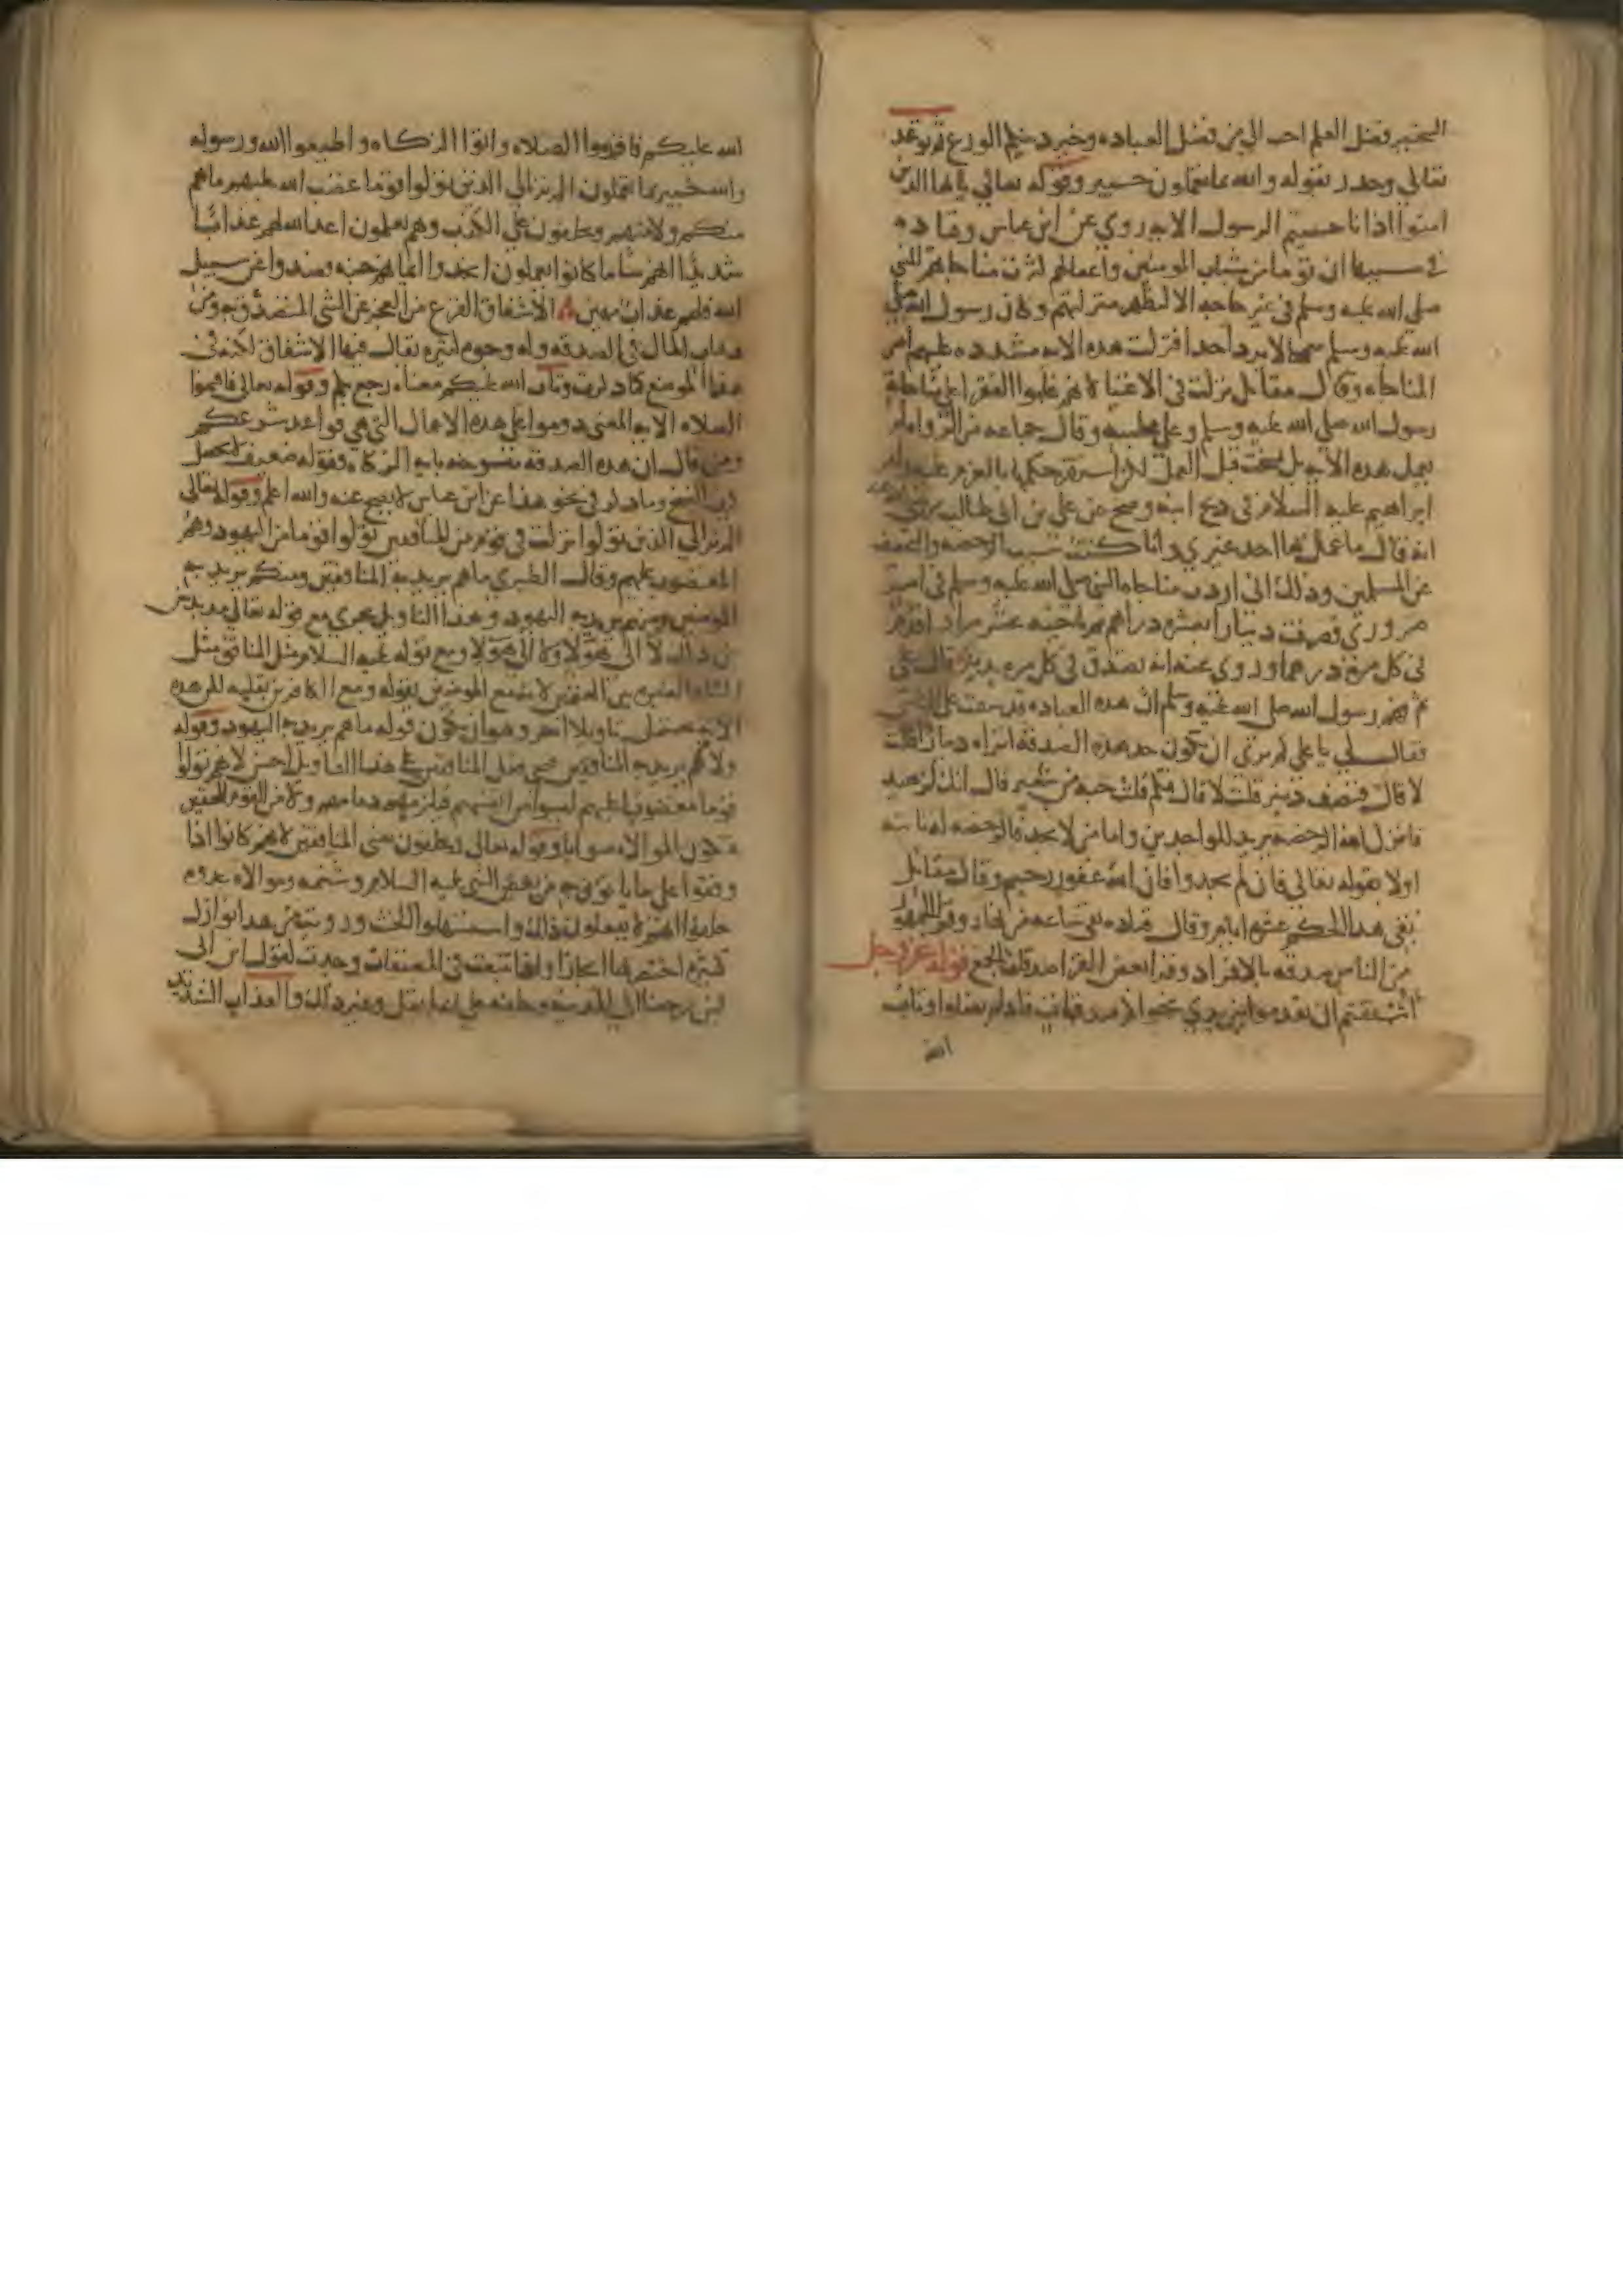 الخبر فضل العلم احب الي من فضل العباده وخير دينكم الورع ثم توعد
تعالي وحذر بقوله والله بما تعملون خبير وقوله تعالي يايها الذين
امنوا اذا ناجيتم الرسول الايه روي عن ابن عباس وقتاده
في سببها ان قوما من شباب المومنين واغفالهم كثرت مناجاتهم للنبي
صلي الله عليه وسلم في غير حاجه الا لتظهر منزلتهم وكان رسول الله صلي
الله عليه وسلم سمحا لا يرد احدا فنزلت هذه الايه مشدده عليهم امر
المناجاه وقال مقاتل نزلت في الاغنيا لانهم غلبوا الفقرا علي مناجاة
رسول الله صلي الله عليه وسلم وعلي مجلسه وقال جماعه من الرواه لم
يعمل بهذه الآيه بل نسخت قبل العمل لكن استقر حكمها بالعزم عليه كامر
ابراهيم عليه السلام في ذبح ابنه وصح عن علي بن ابي طالب
انه قال ما عمل بها احد غيري وانا كنت سبب الرخصه والتخفيف
عن المسلمين وذلك اني اردت مناجاه النبي صلي الله عليه وسلم في امر
ضروري فصرفت دينارا بعشره دراهم ثم ناجيته عشر مرار اقدم
في كل مره درهما وروي عنه انه تصدق في كل مره بدينار قال علي
ثم فهم رسول الله صلي الله عليه وسلم ان هذه العباده قد شقت علي الناس
فقال لي يا علي كم تري ان يكون حد هذه الصدقه اتراه دينارا قلت
لا قال فنصف دينر قلت لا قال فكم قلت حبه من شعير قال انك لزهيد
فانزل الله الرخصه يريد للواجدين واما من لا يجد فالرخصه له ثابته
اولا بقوله تعالي فان لم تجدوا فان الله غفور رحيم وقال مقاتل
بقي هذا الحكم عشره ايام وقال قتاده بقي ساعه من نهار وقرا الجمهور
من الناس صدقه بالافراد وقرا بعض القرا صدقات بالجمع قوله عز وجل
ااشفقتم ان تقدموا بين يدي نجواكم صدقات فاذ لم تفعلوا وتاب
الله
الله عليكم فاقيموا الصلاه واتوا الزكاه واطيعوا الله ورسوله
والله خبير بما تعملون الم تر الي الذين تولوا قوما غضب الله عليهم ما هم
منكم ولا منهم ويحلفون علي الكذب وهم يعلمون اعد الله لهم عذابا
شديدا انهم سا ما كانوا يعملون اتخذوا ايمانهم جنه فصدوا عن سبيل
الله فلهم عذاب مهين الاشفاق الفزع من العجز عن الشي المتصدق به او من
ذهاب المال في الصدقه وله وجوه كثيره يقال فيها الاشفاق لكنه في
هذا الموضع كما ذكرت وتاب الله عليكم معناه رجع بكم وقوله تعالي فاقيموا
الصلاه الايه المعني دوموا علي هذه الاعمال التي هي قواعد شرعكم
ومن قال ان هذه الصدقه منسوخه بايه الزكاه فقوله ضعيف لا يحصل
كيف النسخ وما ذكر في نحو هذا عن ابن عباس لا يصح عنه والله اعلم وقوله تعالي
الم تر الي الذين تولوا نزلت في قوم من المنافقين تولوا قوما من اليهود وهم
المغضوب عليهم وقال الطبري ما هم يريد به المنافقين ومنكم يريد به
المومنين ومنهم يريد به اليهود وهذا التاويل يجري مع قوله تعالي مذبذبين
بين ذلك لا الي هؤلا ولا الي هؤلا ومع قوله عليه السلام مثل المنافق مثل
الشاه العايره بين الغنمين لانه مع المومنين بقوله ومع الكافرين بقلبه لكن هذه
الايه تحتمل تاويلا اخر وهو ان يكون قوله ما هم يريد به اليهود وقوله
ولا منهم يريد به المنافقين فيجي فعل المنافقين علي هذا التاويل احسن لانهم تولوا
قوما مغضوبا عليهم ليسوا من انفسهم فيلزمهم ذمامهم ولا من القوم المحقين
فتكون الموالاه صوابا وقوله تعالي ويحلفون يعني المنافقين لانهم كانوا اذا
وقفوا علي ما ياتون به من بغض النبي عليه السلام وشتمه وموالاه عدوه
حلفوا انهم لا يفعلون ذلك واستسهلوا الحنث ورويت من هذا نوازل
كثيره اختصرتها ايجازا واذا تتبعت في المصنفات وجدت كقول ابن ابي
لين رجعنا الي المدينه وحلفه علي انه لم يقل وغير ذلك والعذاب الشديد